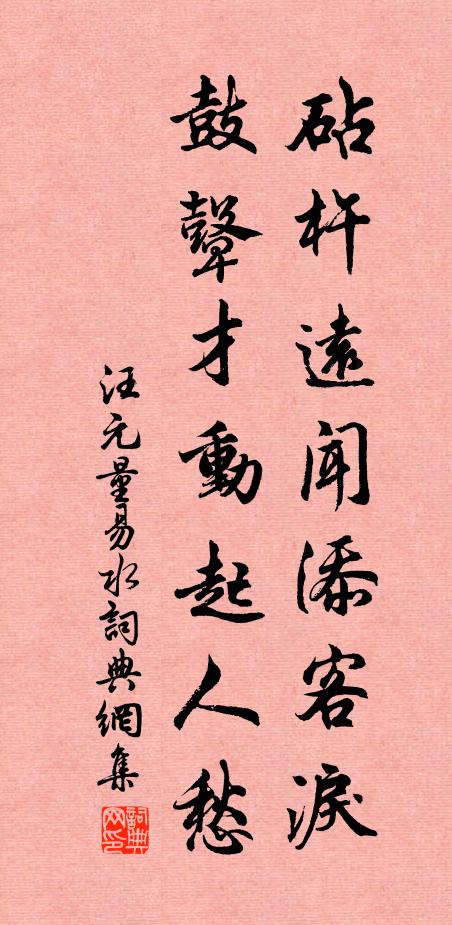 砧杵遠闻添客淚
鼓鼙才動起人愁
汪元量易水詞典網集
詞典网印